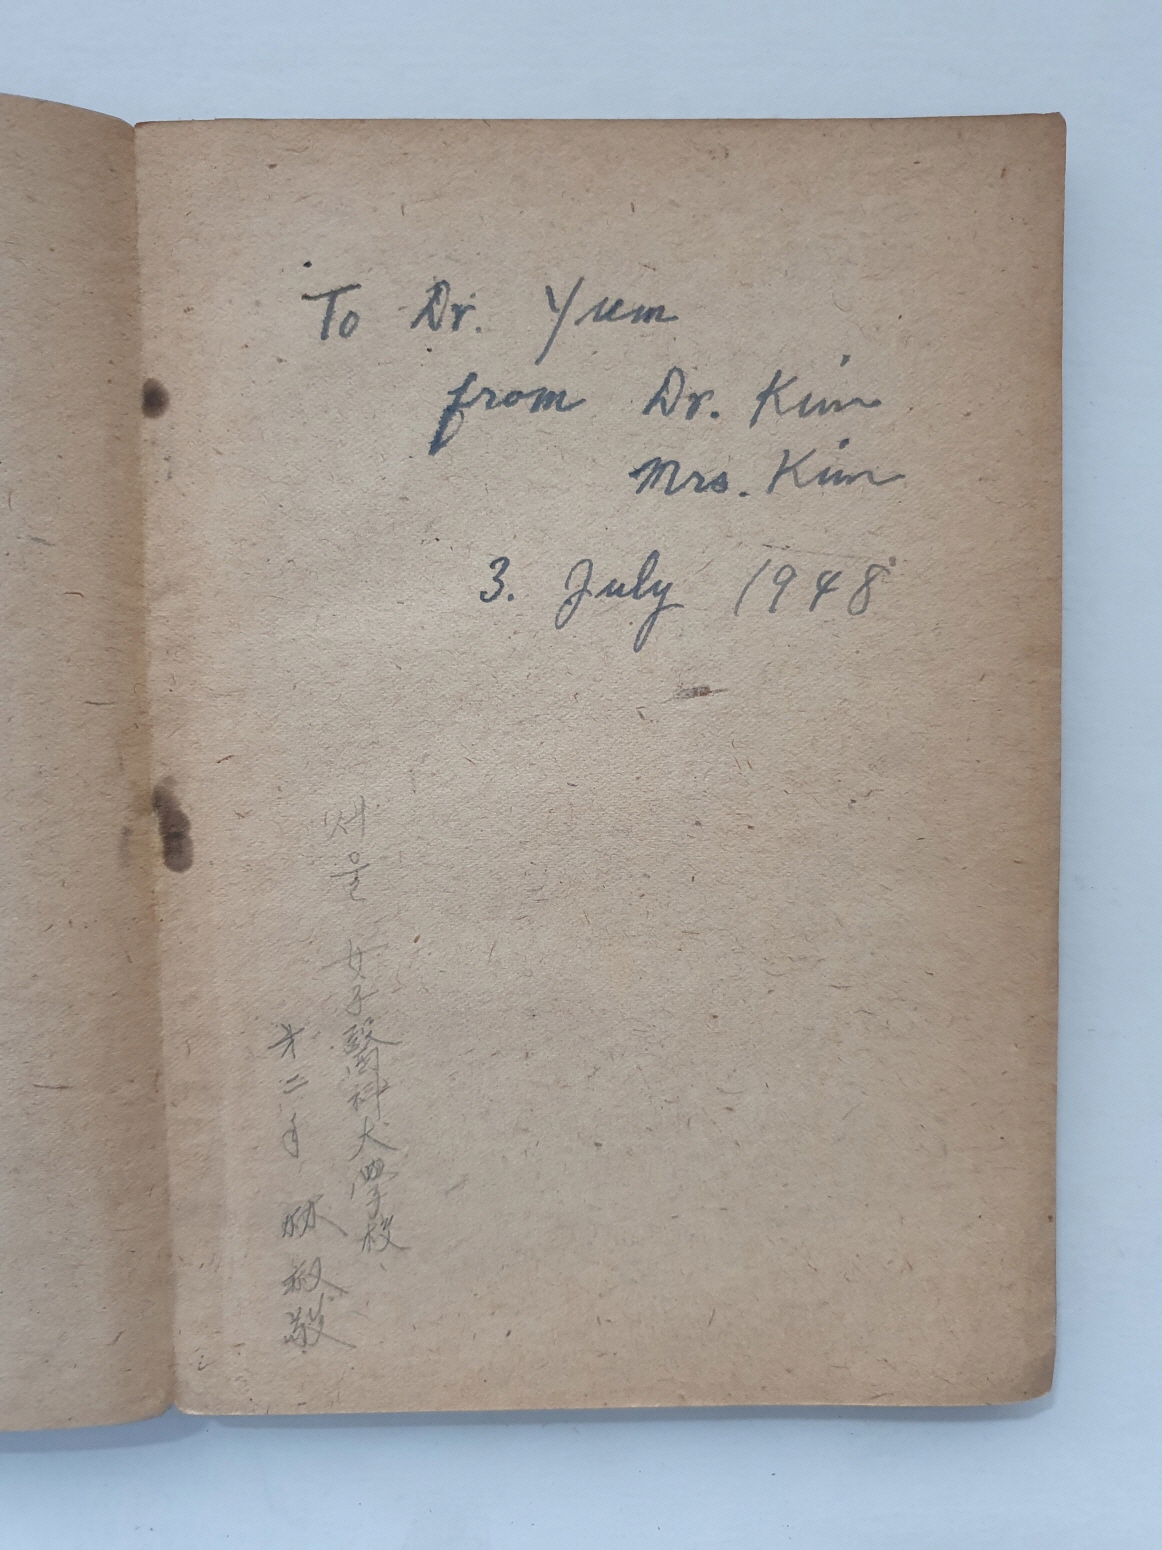 To Dr. Yum
from Dr. Kim
Mrs. Kim
3. July 1948
서울 女子醫科大學校
才二年 林敏